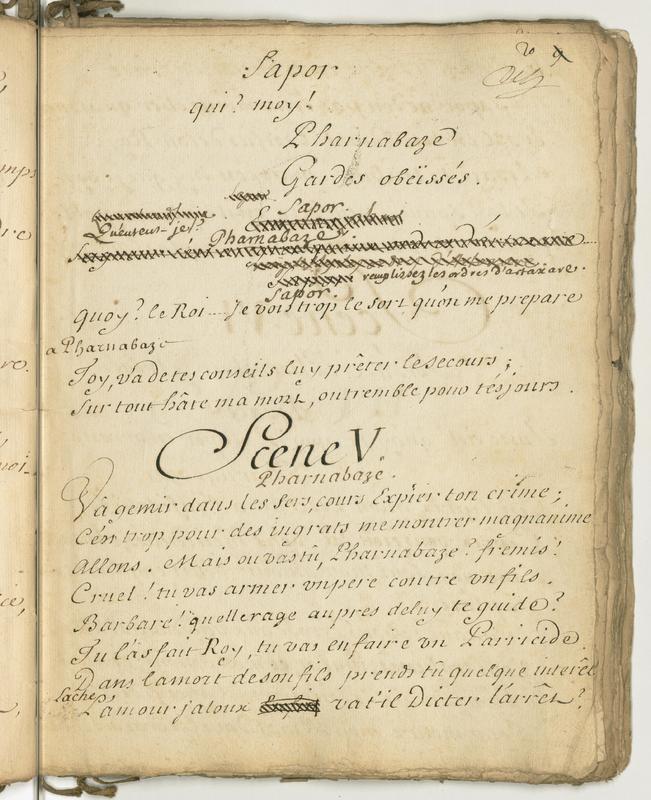 20 9
Sapor
qui? moy!
Pharnabaze
Gardes obeïssés.
Sapor.
Pharnabaze
remplissez les ordres d'artaxare.
Sapor.
quoy? le Roi... Je vois trop le sort, qu'on me prepare
a Pharnabaze
Toy, va de tes conseils luy prêter le secours;
sur tout hâte ma mort, ou tremble pour tes jours.
Scene V.
Pharnabaze.
Và gemir dans les fers, cours Expier ton crime;
C'en trop pour des ingrats me montrer magnanime
Allons. Mais ou vas tû, Pharnabaze? fremis!
Cruel! tu vas armer vn pere contre vn fils.
Barbare! quelle rage aupres de luy te guide?
Tu l'as fait Roy, tu vas en faire vn Parricide.
Dans la mort de son fils prends tû quelque interêt
Lache,
l'amour jaloux va t'il Dicter l'arrêt?